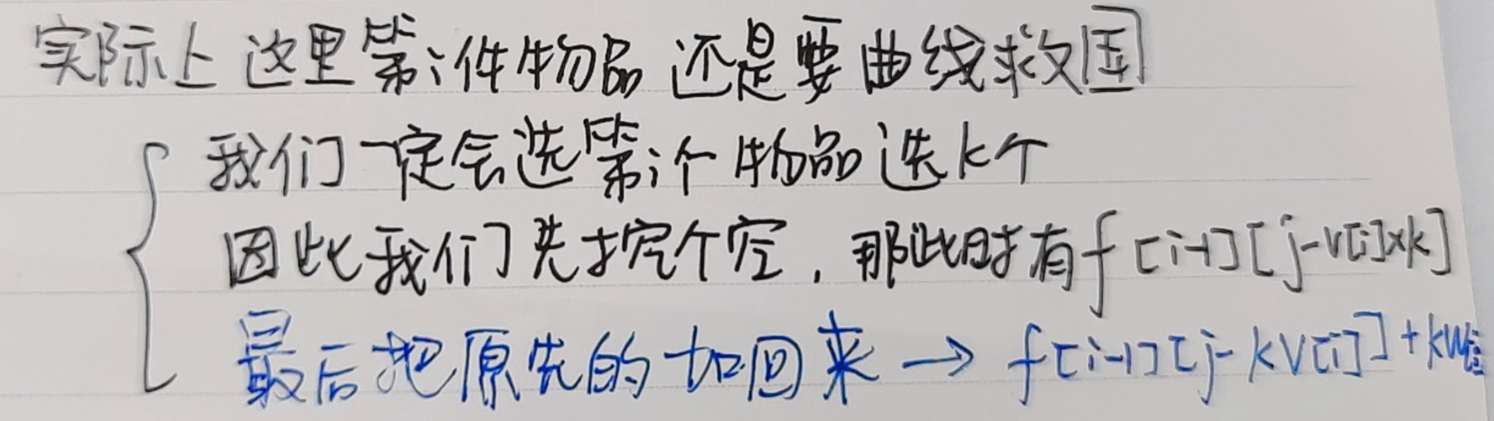 实际上 这里第i件物品 还是要曲线救国
我们一定会选第i个物品 选k个
因此我们先挖个空，那此时有f[i-1][j-v[i]×k]
最后把原先的加回来 → f[i-1][j-kv[i]]+kw